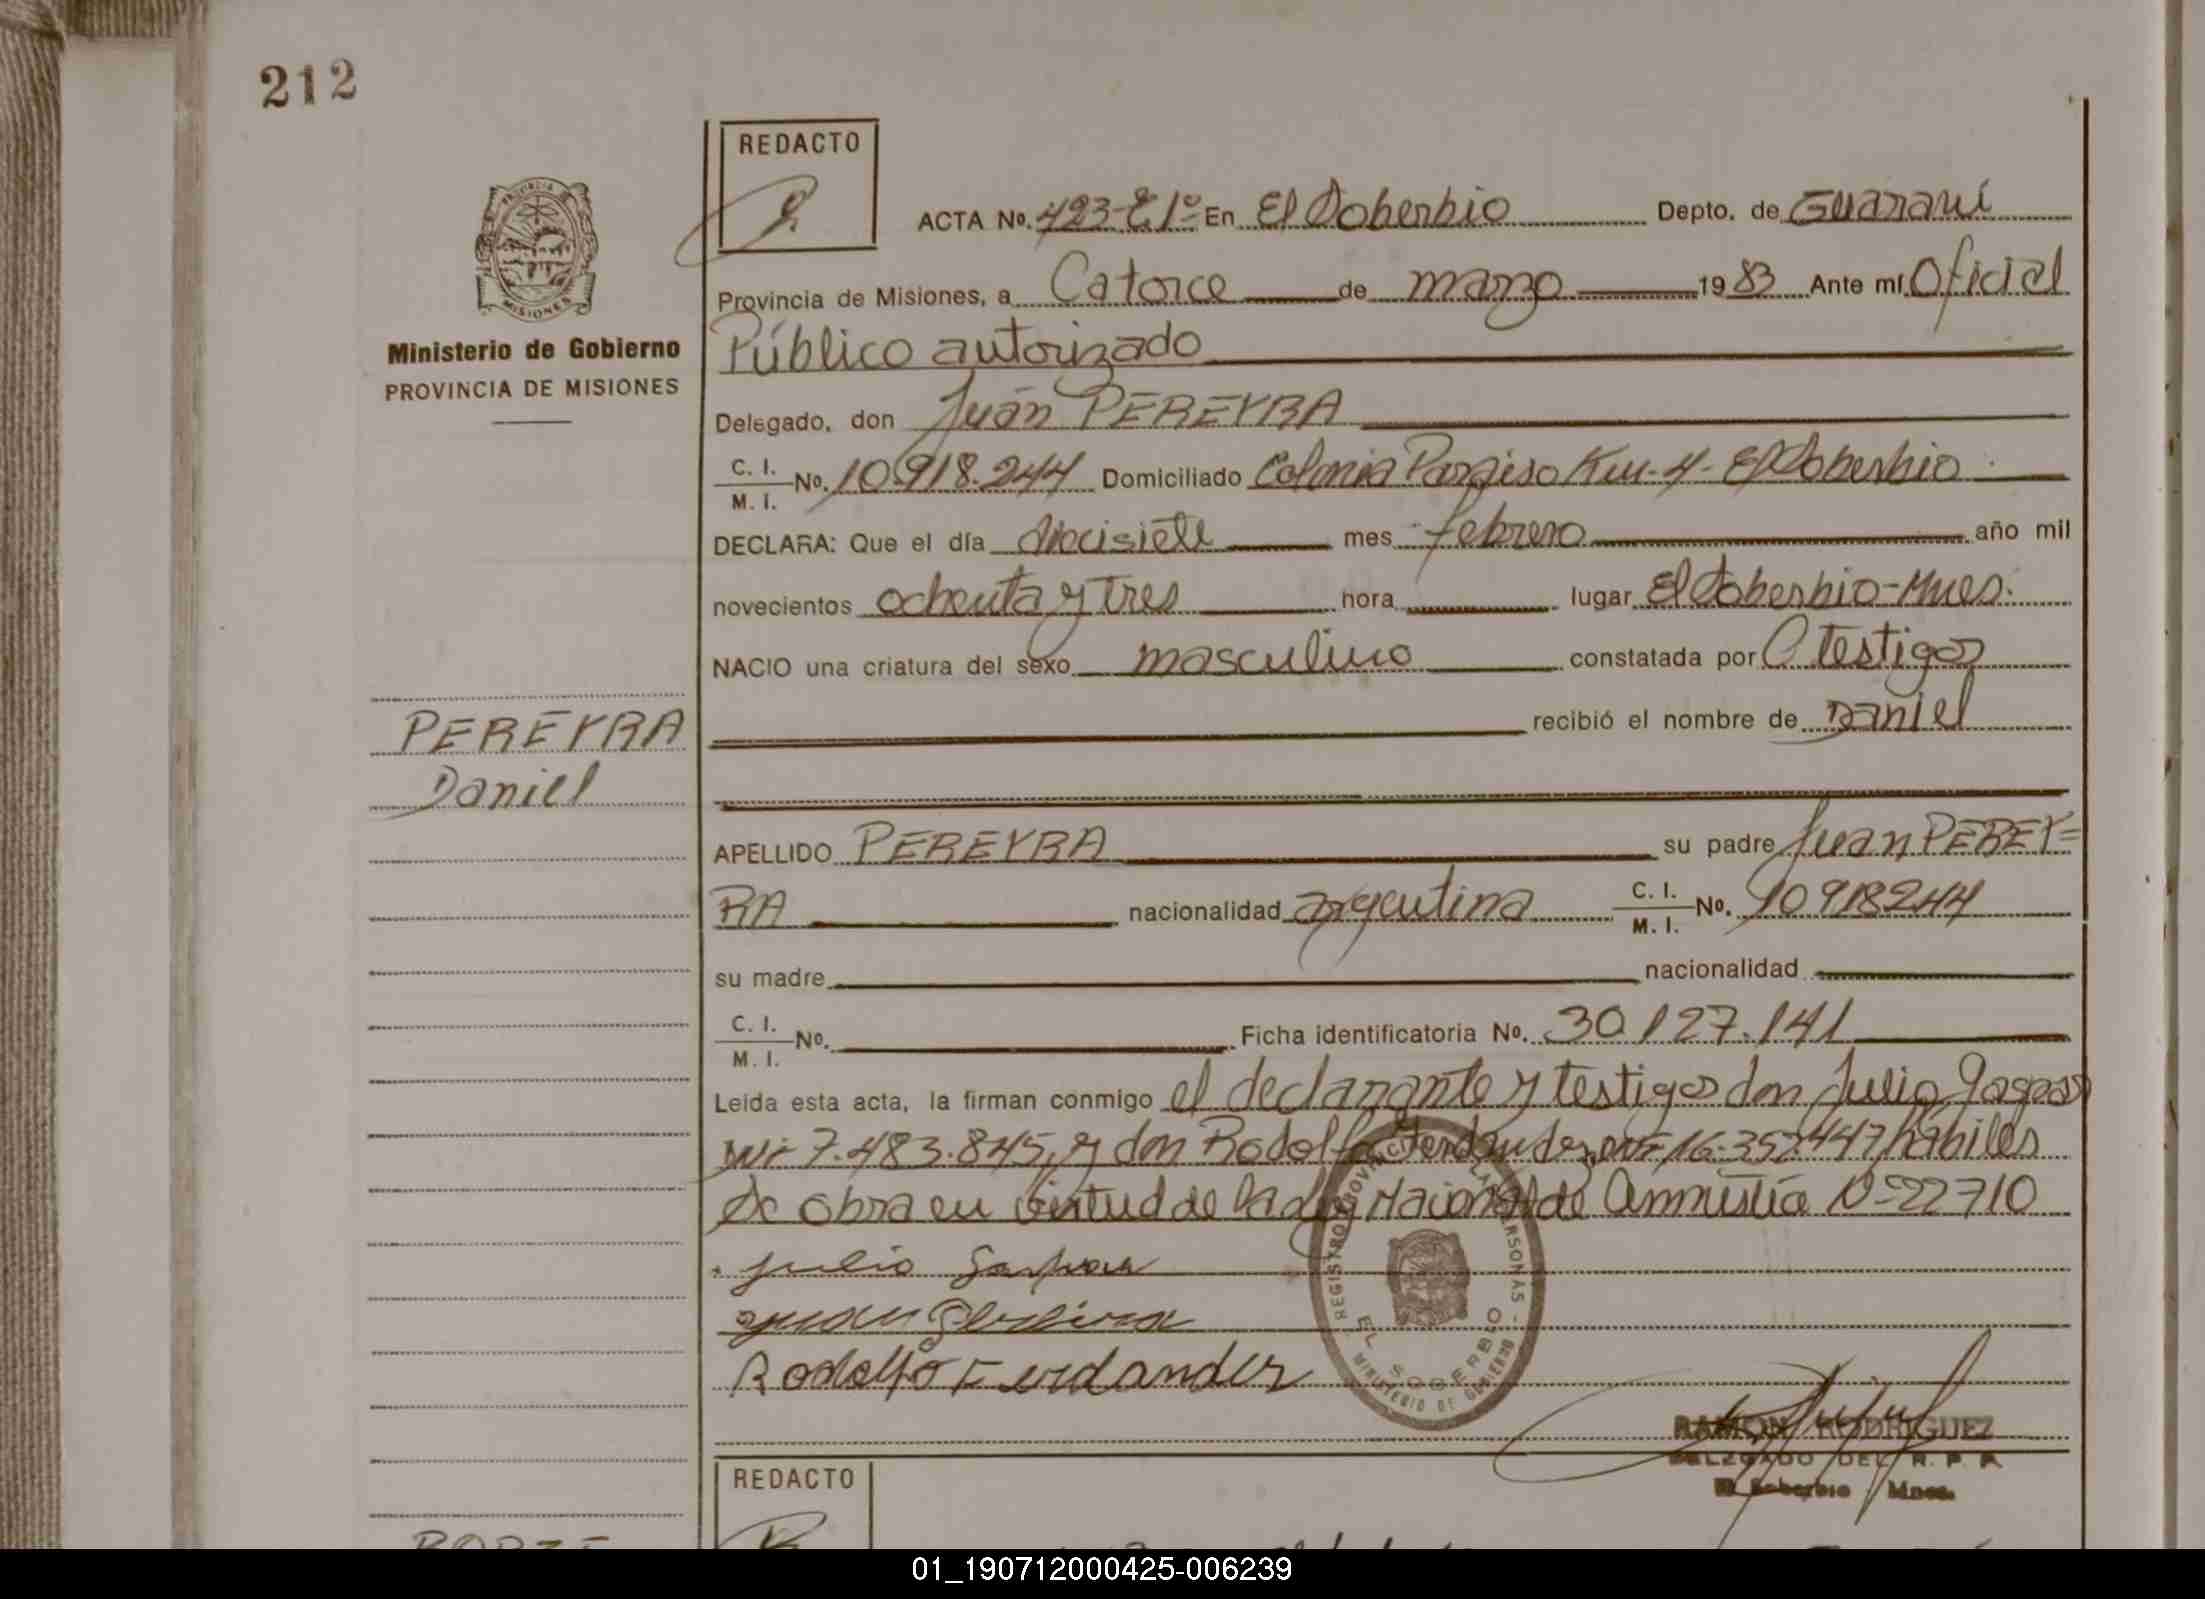 212
REDACTO
ACTA No. 423-E1º En El Soberbio Depto. de Guaraní
Provincia de Misiones, a Catorce de marzo 1983 Ante mí Oficial
Ministerio de Gobierno
PROVINCIA DE MISIONES
Público autorizado
Delegado, don Juan PEREYRA
C. I.
M. I. No. 10.918.244 Domiciliado Colonia Paraiso Km-4-El Soberbio
DECLARA: Que el día diecisiete mes febrero año mil
novecientos ochenta y tres hora lugar El Soberbio-Mnes.
NACIO una criatura del sexo masculino constatada por testigos
PEREYRA
Daniel
recibió el nombre de Daniel
APELLIDO PEREYRA su padre Juan PEREY=
RA nacionalidad argentina C. I.
M. I. No. 10918244
su madre nacionalidad
C. I.
M. I. No. Ficha identificatoria No. 30.127.141
Leida esta acta, la firman conmigo el declarante y testigos don Julio Gaspar
MI 7.483.845, y don Rodolfo MI 16.352.447 hábiles
Se obra en virtud de la Ley Nacional de Amnistía Nº 22710
Julio Gaspar
Juan Pereira
Rodolfo
REGISTRO PROVINCIAL DE LAS PERSONAS
EL SOBERBIO
MINISTERIO DE GOBIERNO
RAMON RODRIGUEZ
DELEGADO DEL R. P. P.
El Soberbio Mnes.
REDACTO
01_190712000425-006239